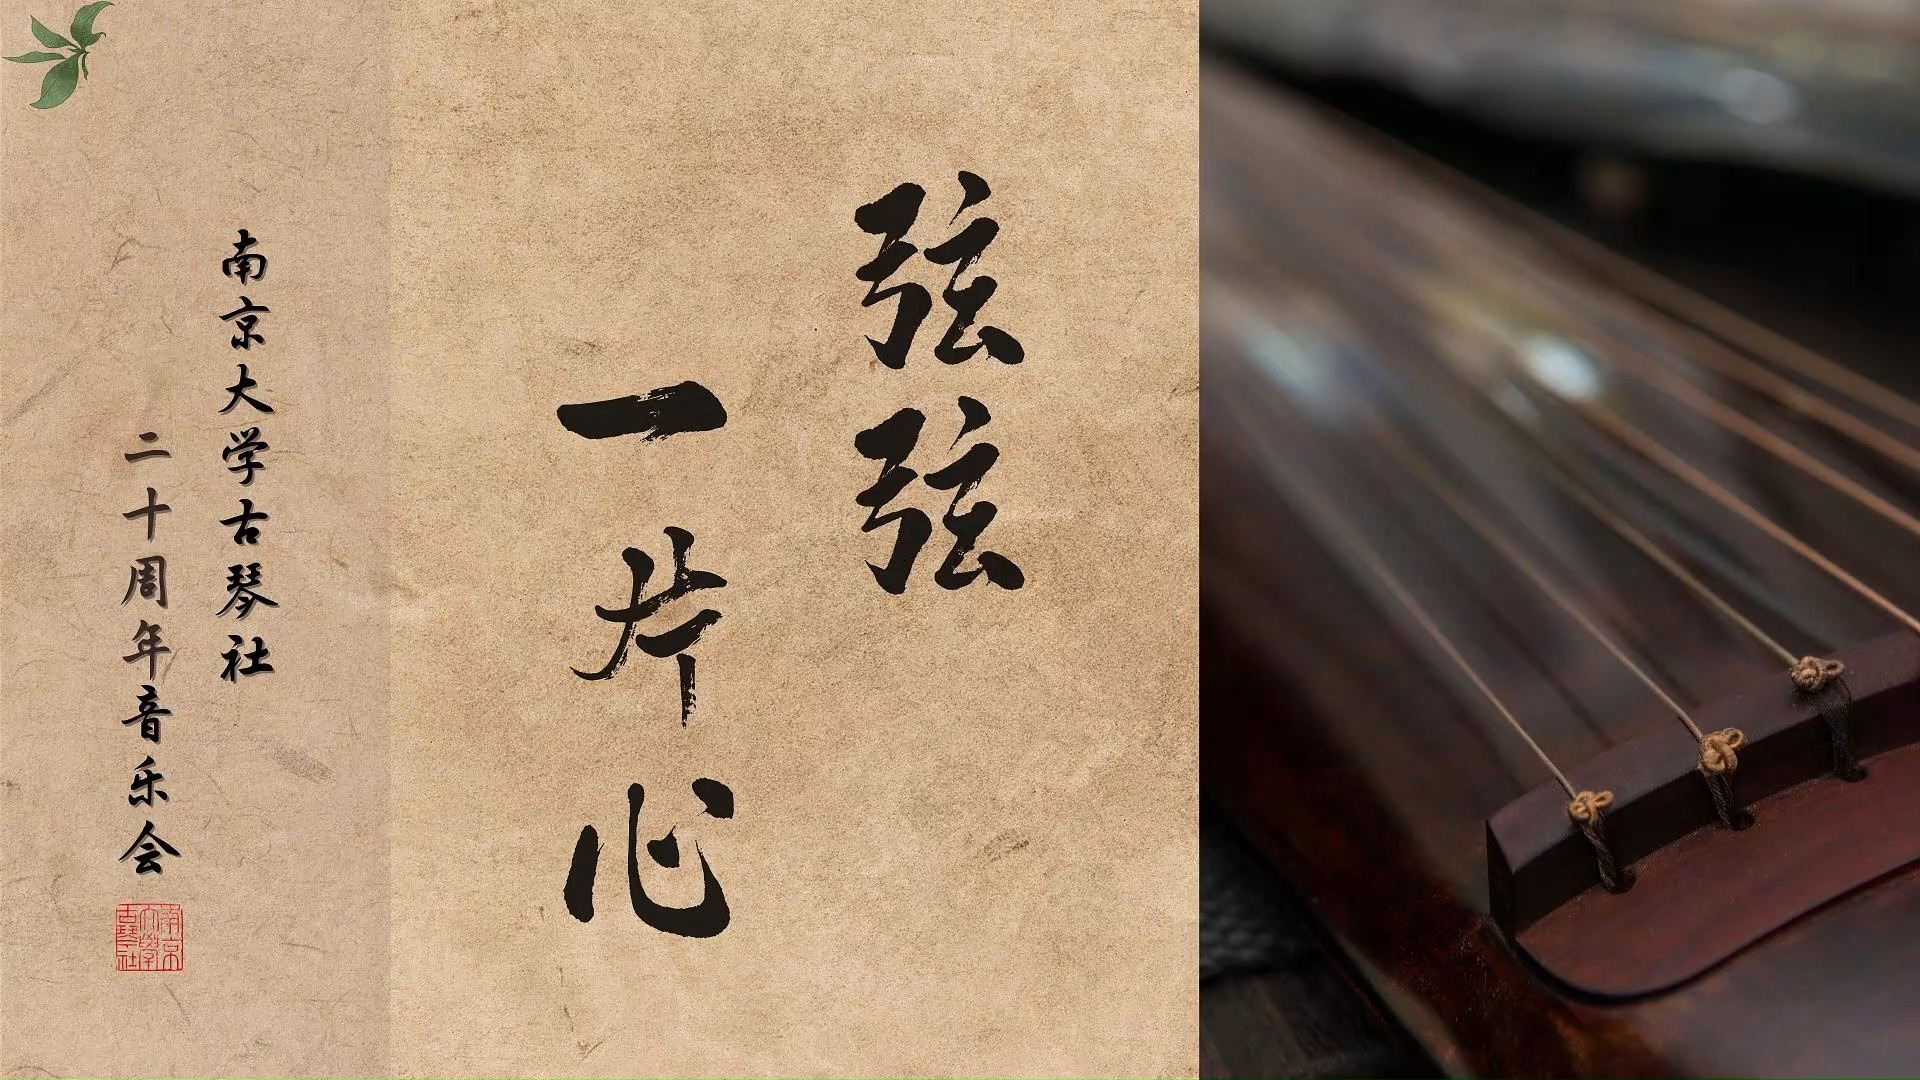 弦弦
一片心
南京大学古琴社
二十周年音乐会
南京
大学
古琴社